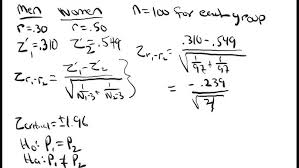 Men Women n=100 for each group
r=.30 r=.50
Z'₁=.310 Z'₂=.549
Z_{r₁-r₂} = \frac{Z'_1 - Z'_2}{\sqrt{\frac{1}{N_1-3} + \frac{1}{N_2-3}}}
Z_{r₁-r₂} = \frac{.310 - .549}{\sqrt{\frac{1}{97} + \frac{1}{97}}}
= \frac{-.239}{\sqrt{}}
Zcritical = ±1.96
H₀: P₁ = P₂
Ha: P₁ ≠ P₂